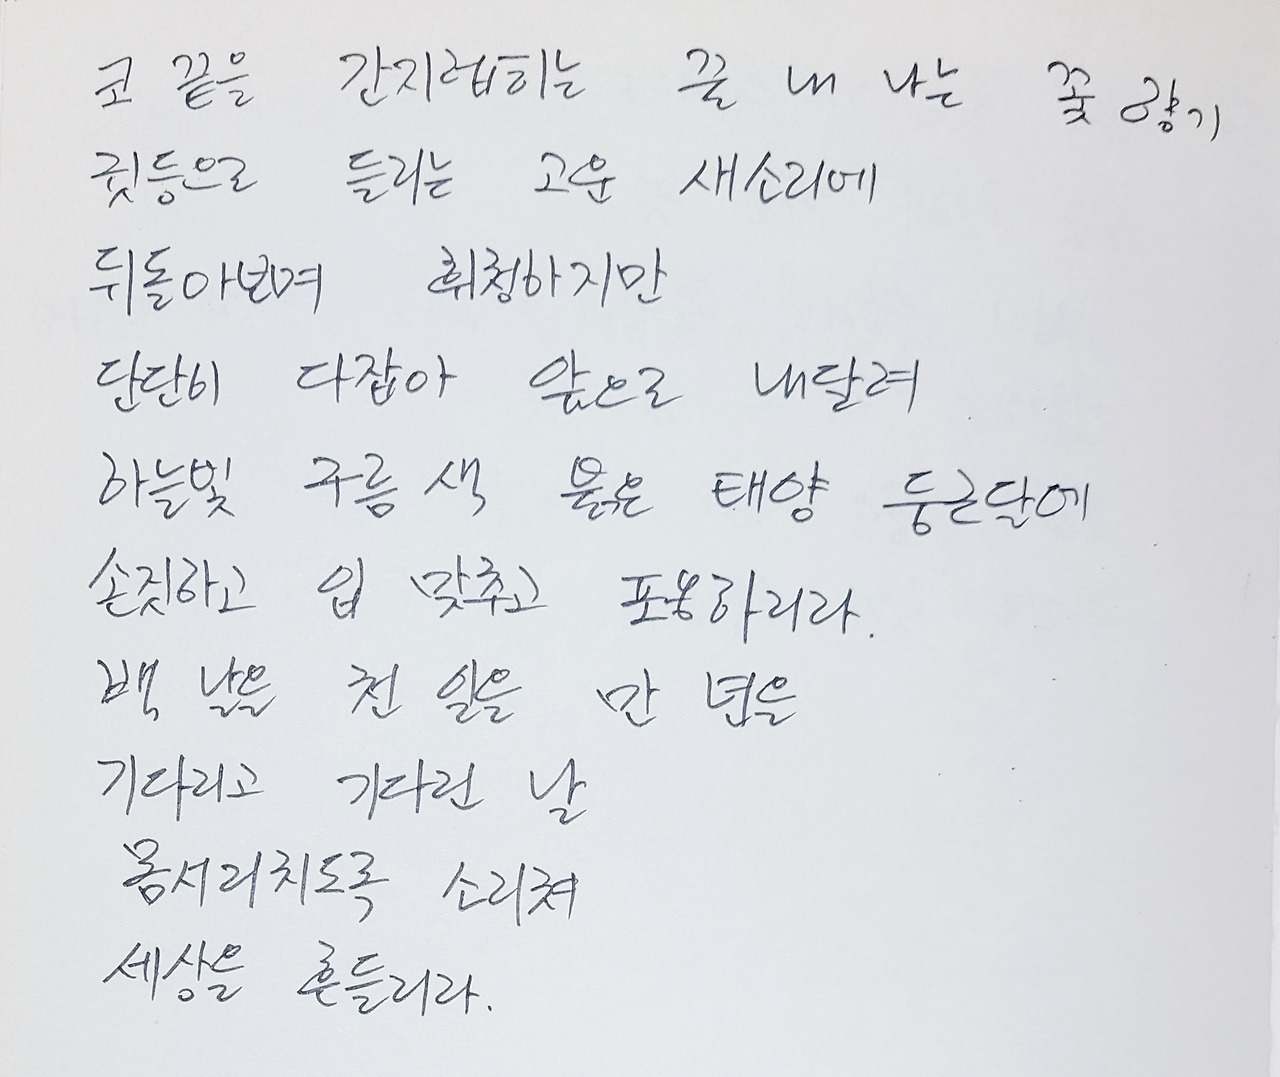 코 끝을 간지럽히는 끌 내 나는 꽃 향기
귓등으로 들리는 고운 새소리에
뒤돌아보며 휘청하지만
단단히 다잡아 앞으로 내달려
하늘빛 구름 색 묽은 태양 둥근달에
손짓하고 입 맞추고 포옹하리라.
백 날을 천 일을 만 년을
기다리고 기다린 날
몸서리치도록 소리쳐
세상을 흔들리라.